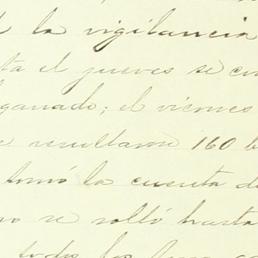 la vigilancia
el jueves se
ganado; el viernes
resultaron 160
tomó la cuenta de
no se soltó hasta
todos los